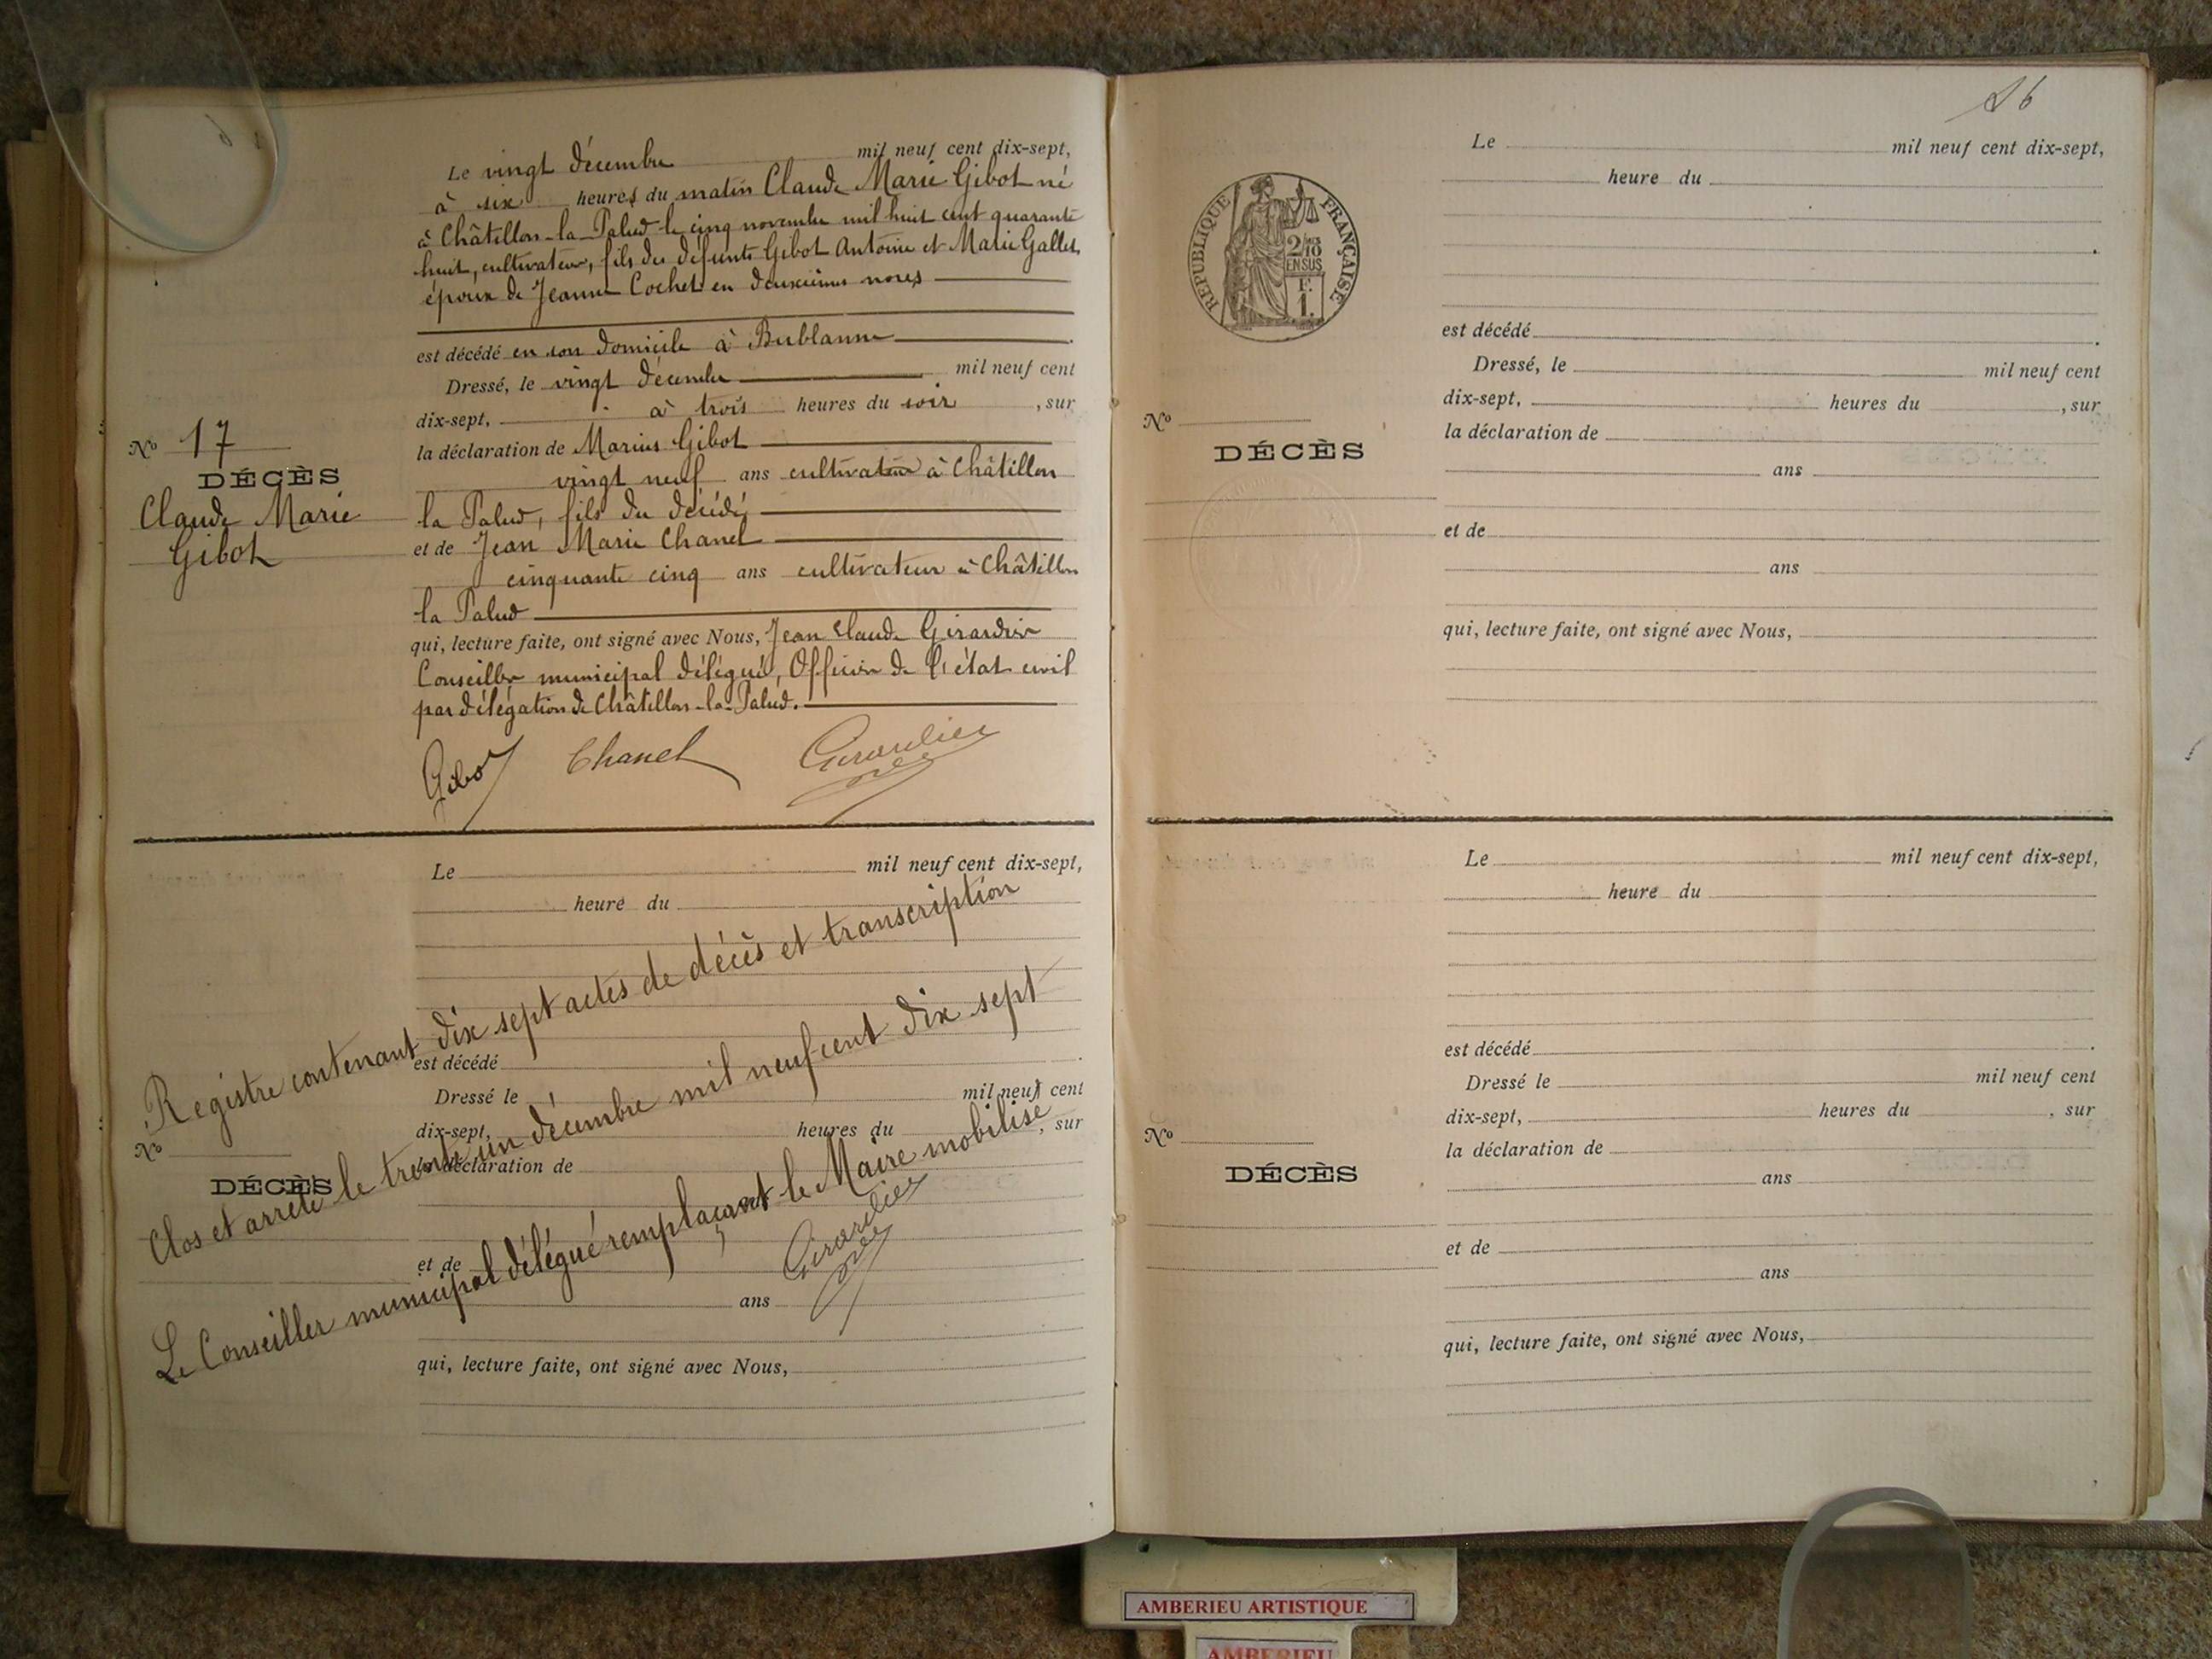 Le vingt décembre mil neuf cent dix-sept,
à six heures du matin Claude Marie Gibot né
à Châtillon-la-Palud le cinq novembre mil huit cent quarante
huit, cultivateur, fils des défunts Gibot Antoine et Marie Gallet,
époux de Jeanne Cochet en deuxièmes noces
est décédé en son domicile à Bublanne
Dressé, le vingt décembre mil neuf cent
dix-sept, à trois heures du soir, sur
la déclaration de Marius Gibot
vingt neuf ans cultivateur à Châtillon
la Palud, fils du décédé
et de Jean Marie Chanel
cinquante cinq ans cultivateur à Châtillon
la Palud
qui, lecture faite, ont signé avec Nous, Jean Claude Girardier
Conseiller municipal délégué, Officier de l'état civil
par délégation de Châtillon-la-Palud.
Gibot Chanel Girardier
No 17
DÉCÈS
Claude Marie
Gibot
Le mil neuf cent dix-sept,
heure du
est décédé
Dressé le mil neuf cent
dix-sept, heures du , sur
la déclaration de
et de
ans
qui, lecture faite, ont signé avec Nous,
No
DÉCÈS
Registre contenant dix sept actes de décès et transcription
Clos et arrêté le trente un décembre mil neuf cent dix sept
Le Conseiller municipal délégué remplaçant le Maire mobilisé
Girardier
Le mil neuf cent dix-sept,
heure du
est décédé
Dressé, le mil neuf cent
dix-sept, heures du , sur
la déclaration de
ans
et de
ans
qui, lecture faite, ont signé avec Nous,
RÉPUBLIQUE FRANÇAISE
2/10
EN SUS
F.
1.
No
DÉCÈS
Le mil neuf cent dix-sept,
heure du
est décédé
Dressé le mil neuf cent
dix-sept, heures du , sur
la déclaration de
ans
et de
ans
qui, lecture faite, ont signé avec Nous,
No
DÉCÈS
AMBERIEU ARTISTIQUE
AMBERIEU